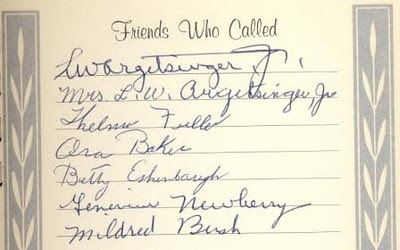 Friends Who Called
L W Argetsinger, Jr.
Mrs L. W. Argetsinger, Jr
Thelma Fuller
Ora Baker
Betty Eshenbaugh
Genevieve Newberry
Mildred Bush